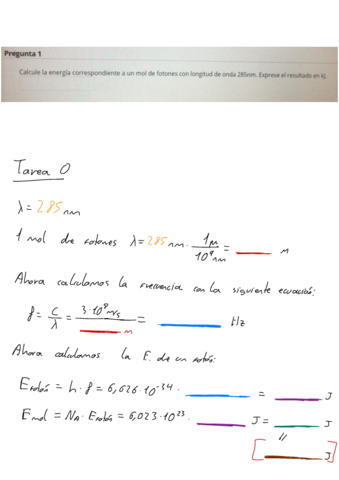 Pregunta 1
Calcule la energía correspondiente a un mol de fotones con longitud de onda 285nm. Exprese el resultado en kJ.
Tarea 0
λ = 285 nm
1 mol de fotones λ = 285 nm · 1m / 10⁹ nm = ____ m
Ahora calculamos la frecuencia con la siguiente ecuación:
f = c / λ = 3·10⁸ m/s / ____ m = ____ Hz
Ahora calculamos la E. de un fotón:
E fotón = h · f = 6,626·10⁻³⁴ · ____ = ____ J
E mol = NA · E fotón = 6,023·10²³ · ____ J = ____ J
//
[____ J]